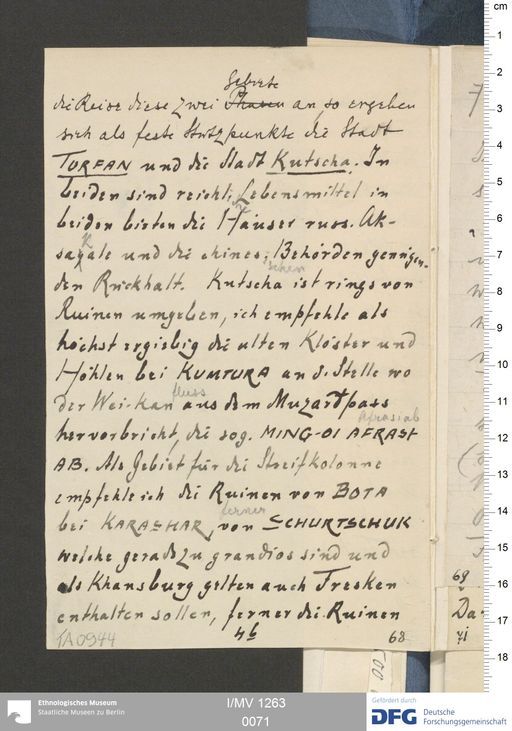 Gebiete
die Reise diese zwei Phasen an, so ergeben
sich als feste Stützpunkte die Stadt
TURFAN und die Stadt Kutscha. In
beiden sind reichl. Lebensmittel in
beiden bieten die Häuser russ. Ak-
sakale und die chines. Behörden genügen-
ischen
den Rückhalt. Kutscha ist rings von
Ruinen umgeben, ich empfehle als
höchst ergiebig die alten Klöster und
Höhlen bei KUMTURA an d. Stelle wo
fluss
der Wei-kan aus dem Muzartpass
Afrasiab
hervorbricht, die sog. MING-OI AFRASI
AB. Als Gebiet für die Streifkolonne
empfehle ich die Ruinen von BOTA
ferner
bei KARASHAR, von SCHURTSCHUK
welche geradezu grandios sind und
als Khansburg gelten auch Fresken
enthalten sollen, ferner die Ruinen
4b
68
TA 0944
69
Da-
cm
1
2
3
4
5
6
7
8
9
10
11
12
13
14
15
16
17
18
Ethnologisches Museum
Staatliche Museen zu Berlin
I/MV 1263
0071
Gefördert durch
DFG Deutsche
Forschungsgemeinschaft